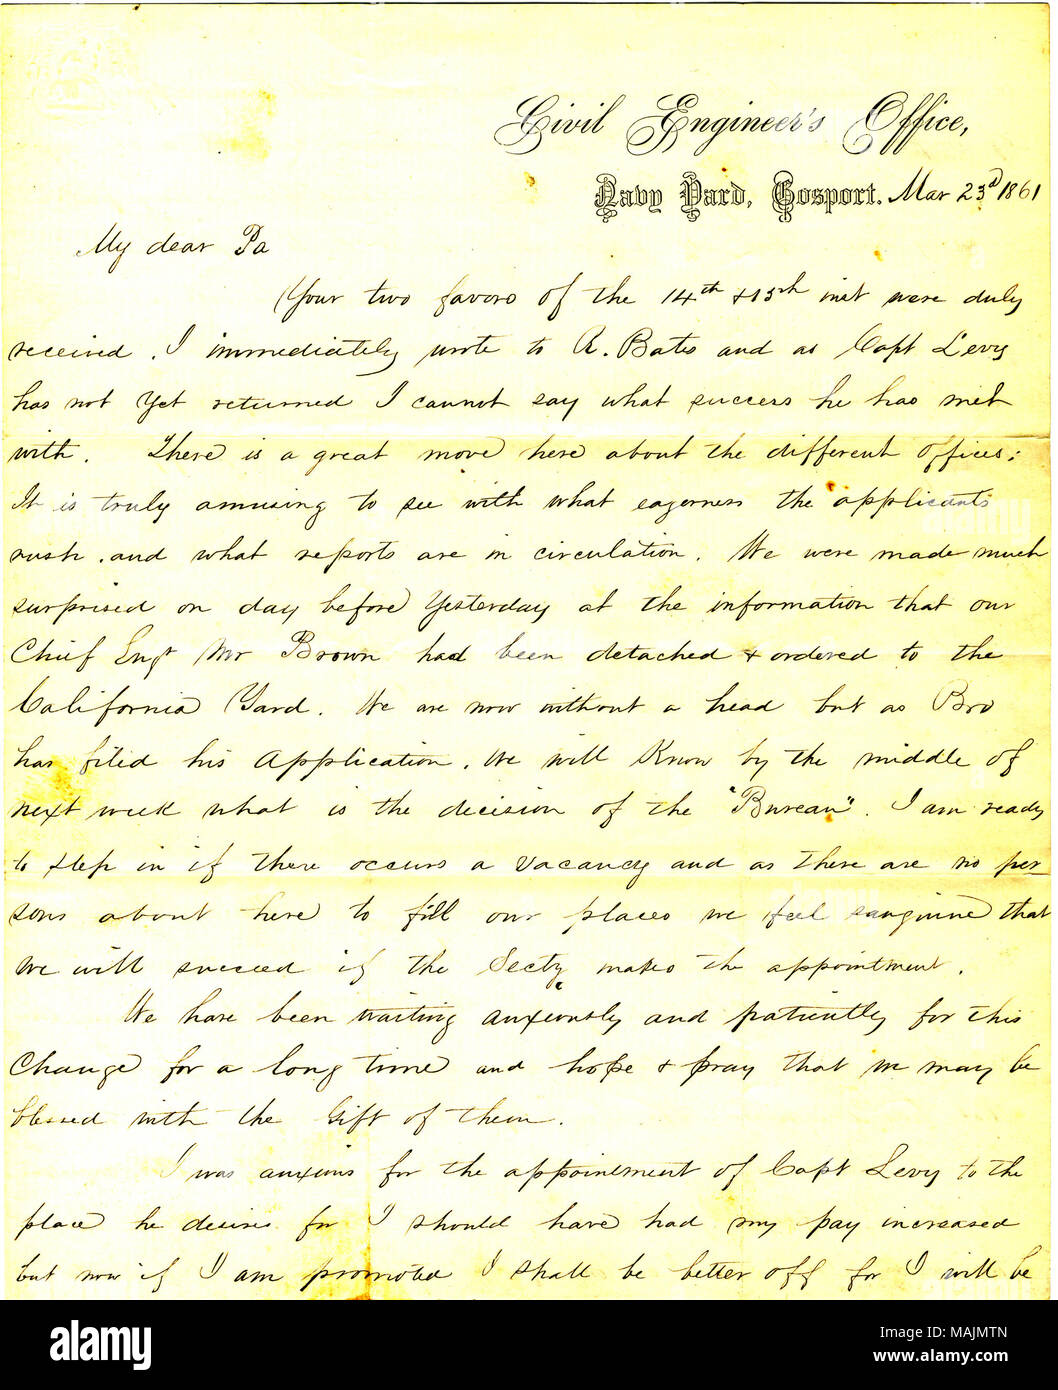 Civil Engineer's Office,
Navy Yard, Gosport. Mar 23d 1861
My dear Pa
Your two favors of the 14th & 15th inst were duly
received. I immediately wrote to R. Bates and as Capt Levy
has not yet returned I cannot say what success he has met
with. There is a great move here about the different offices;
It is truly amusing to see with what eagerness the applicants
rush. and what reports are in circulation. We were made much
surprised on day before yesterday at the information that our
Chief Engr Mr Brown had been detached & ordered to the
California Yard. We are now without a head but as Bro
has filed his application. We will know by the middle of
next week what is the decision of the "Bureau". I am ready
to step in if there occurs a vacancy and as there are no per
sons about here to fill our places we feel sanguine that
we will succeed if the Secty makes the appointment.
We have been waiting anxiously and patiently for this
Change for a long time and hope & pray that we may be
blessed with the Gift of them.
I was anxious for the appointment of Capt Levy to the
place he desires for I should have had my pay increased
but now if I am promoted I shall be better off for I will be
alamy
Image ID: MAJMTN
www.alamy.com